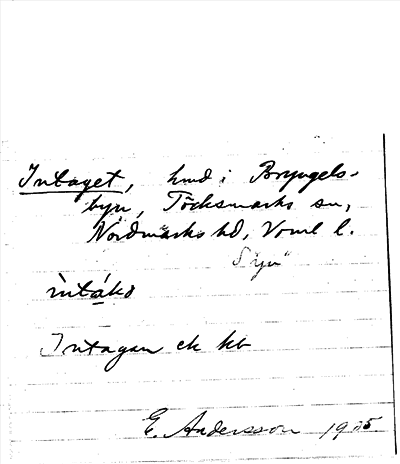 Intaget, hmd i Bryngels-
byn, Töcksmarks sn,
Nordmarks hd, Vrml l.
ìntákə
Intagan ek kb
E. Andersson 19